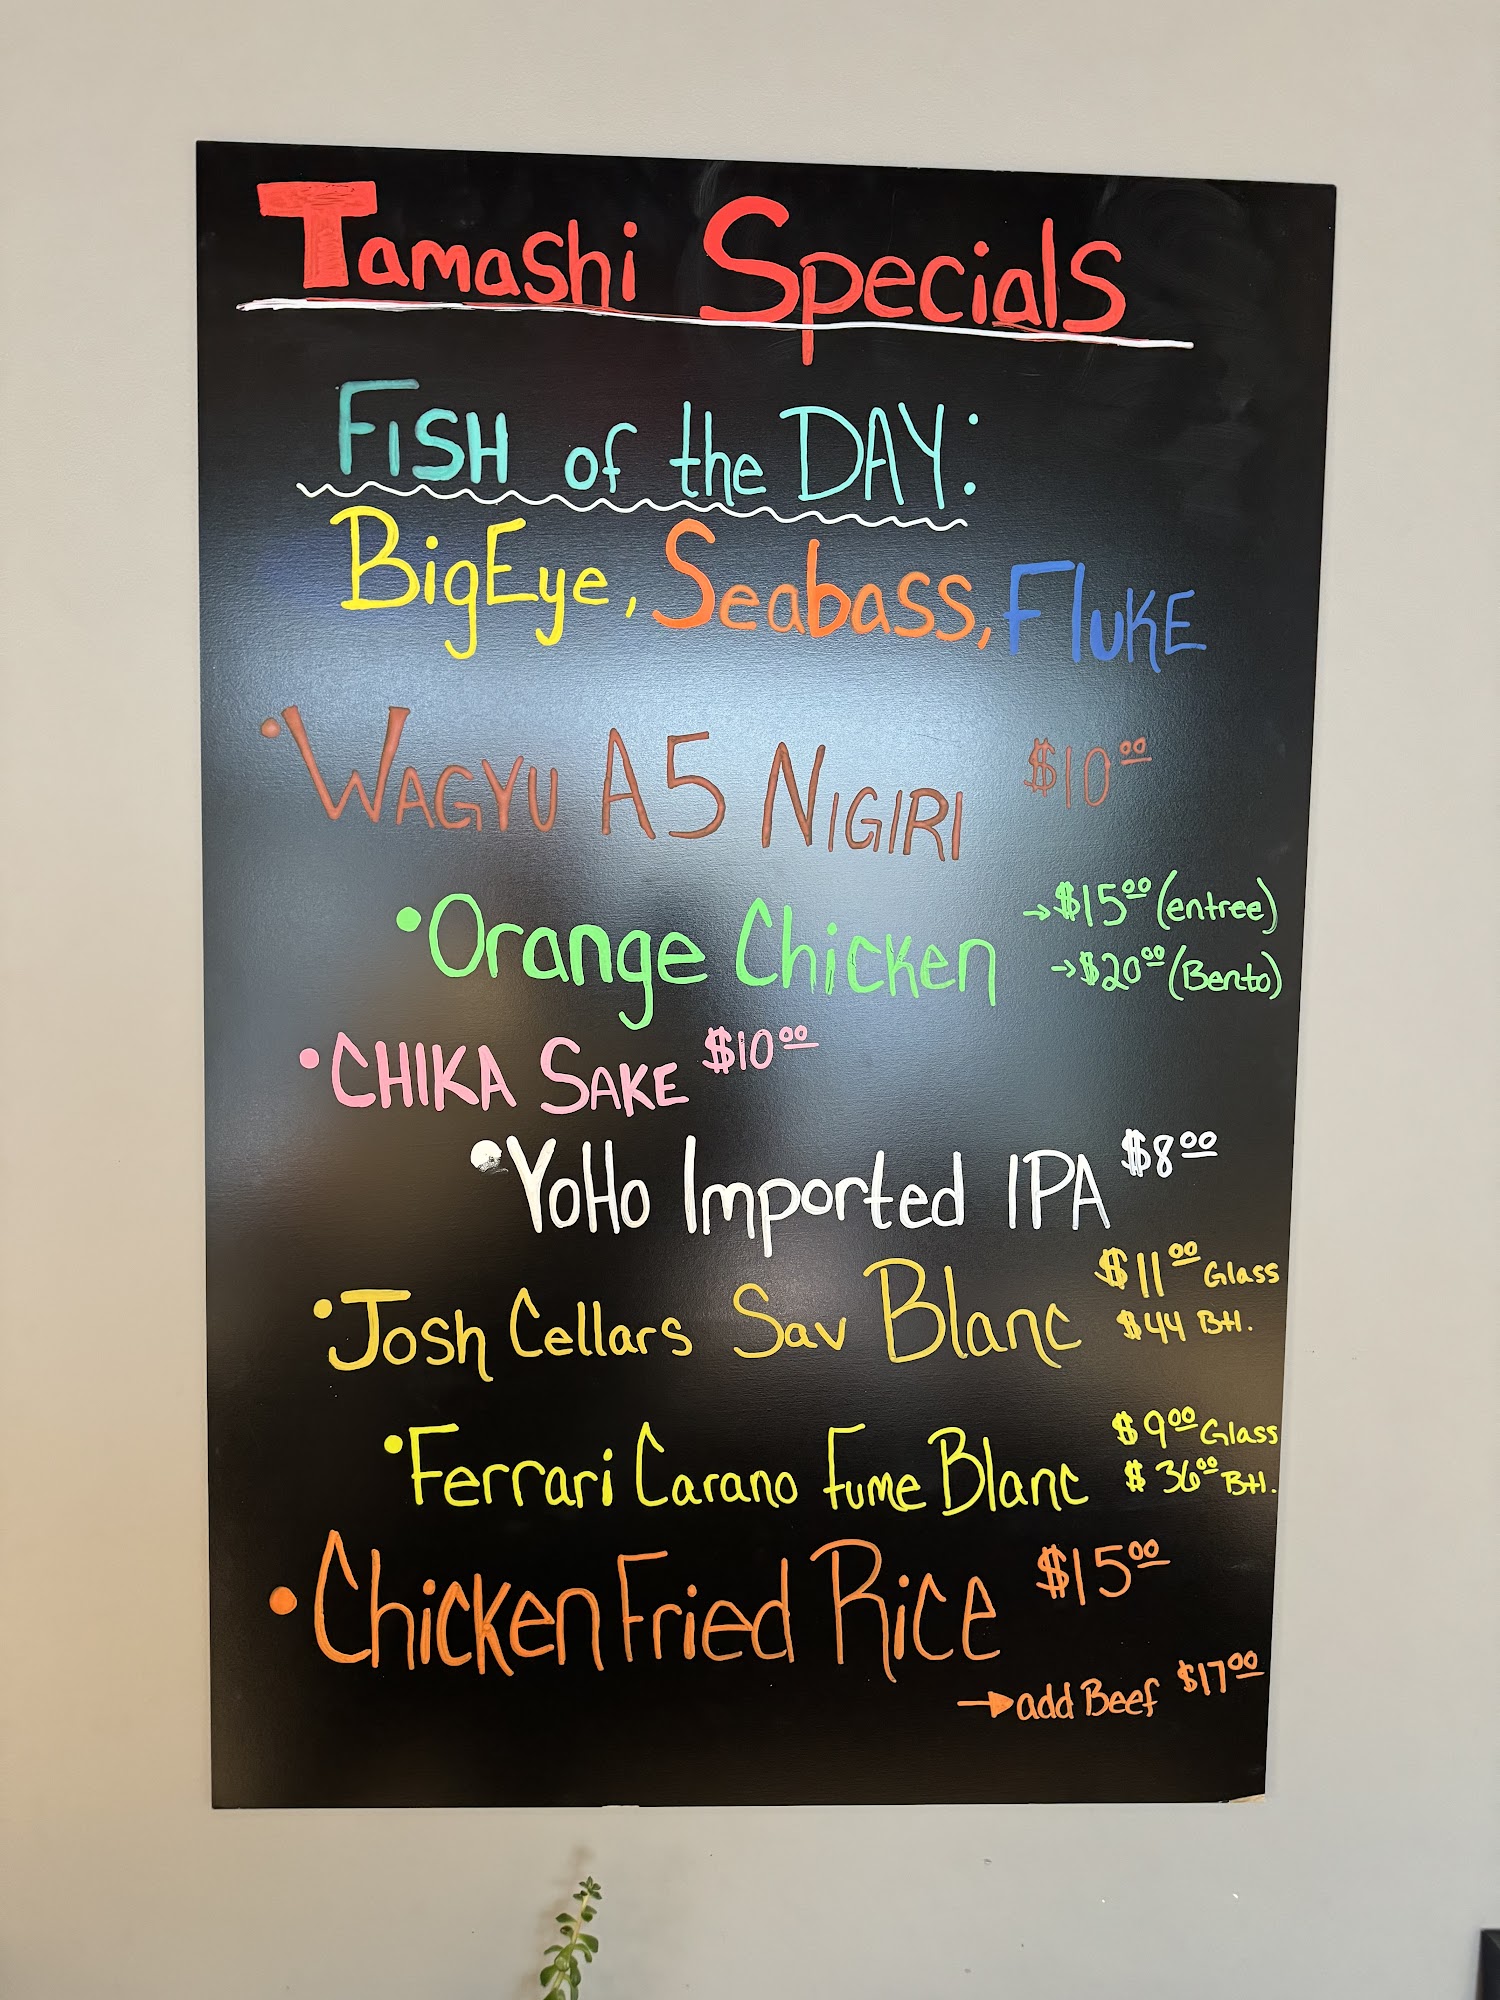 Tamashi Specials
FISH of the DAY:
BigEye, Seabass, FluKE
• WAGYU A5 NIGIRI $10.00
• Orange Chicken → $15.00 (entree)
→ $20.00 (Bento)
• CHIKA SAKE $10.00
• YoHo Imported IPA $8.00
• Josh Cellars Sav Blanc $11.00 Glass
$44 Btl.
• Ferrari Carano Fume Blanc $9.00 Glass
$36.00 Btl.
• Chicken Fried Rice $15.00
→ add Beef $17.00